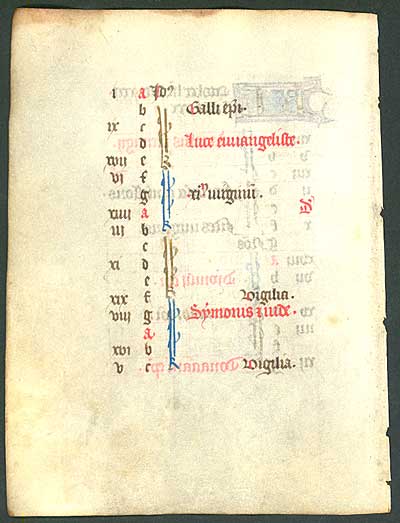 i a Id9
b Galli epi.
ix c
d Luce euuangeliste.
xvii e
vi f
g virginu.
xiiii a
iii b
c
xi d
e
xix f Vigilia.
viii g Symonis z iude.
a
xvi b
v c Vigilia.